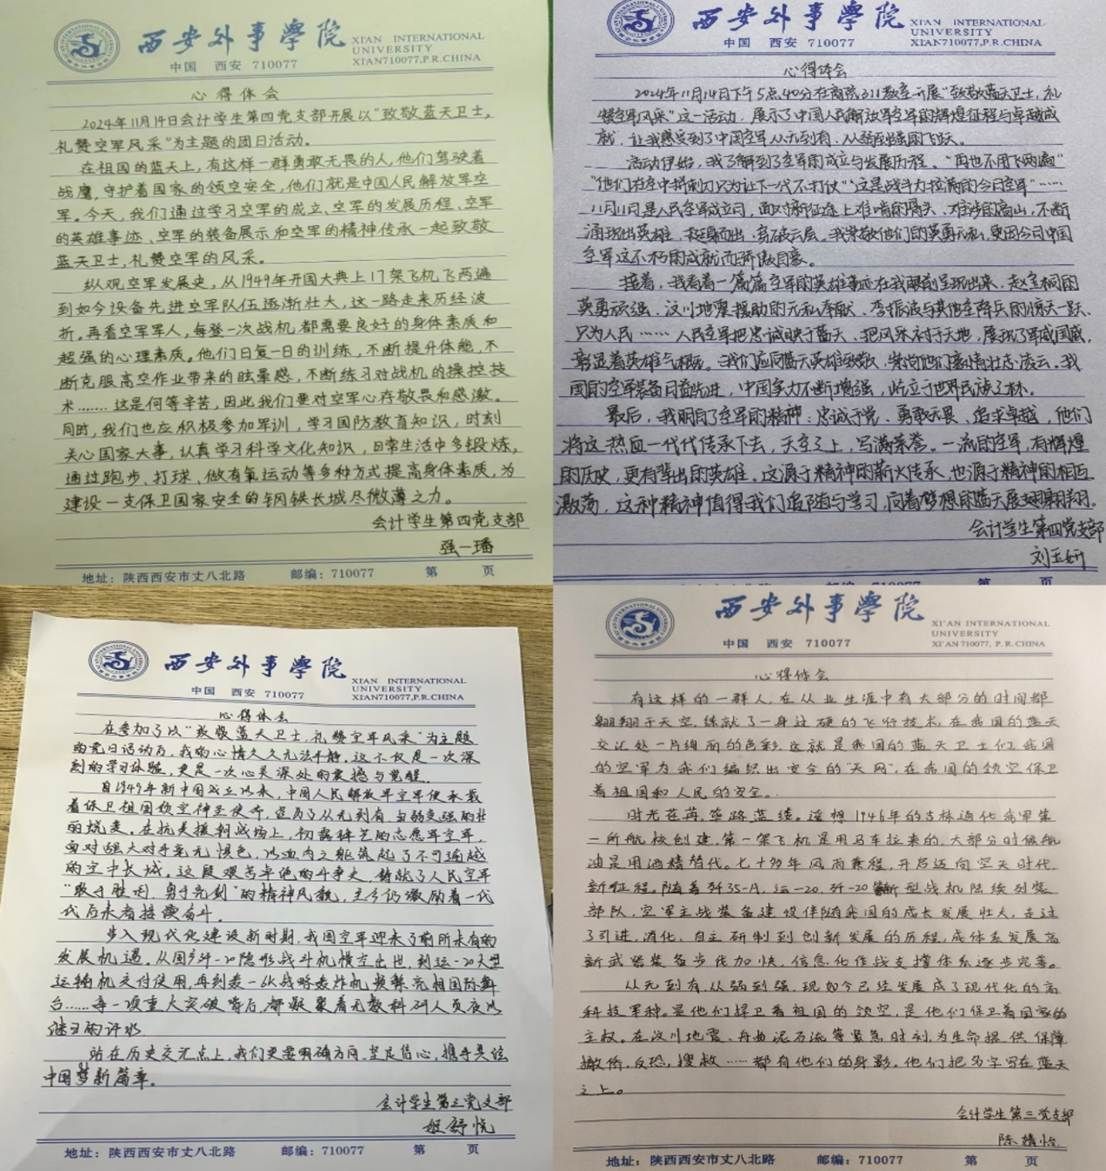 西安外事學院
XIAN INTERNATIONAL
UNIVERSITY
中国 西安 710077
XIAN710077,P.R.CHINA
心得体会
2024年11月14日会计学生第四党支部开展以“致敬蓝天卫士,
礼赞空军风采”为主题的团日活动。
在祖国的蓝天上,有这样一群勇敢无畏的人,他们驾驶着
战鹰,守护着国家的领空安全,他们就是中国人民解放军空
军。今天,我们通过学习空军的成立、空军的发展历程、空军
的英雄事迹、空军的装备展示和空军的精神传承一起致敬
蓝天卫士,礼赞空军的风采。
纵观空军发展史,从1949年开国大典上17架飞机飞两遍
到如今设备先进空军队伍逐渐壮大,这一路走来历经波
折。再看空军军人,每登一次战机都需要良好的身体素质和
超强的心理素质。他们日复一日的训练,不断提升体能,不
断克服高空作业带来的眩晕感,不断练习对战机的操控技
术……这是何等辛苦,因此我们要对空军心存敬畏和感激。
同时,我们也应积极参加军训,学习国防教育知识,时刻
关心国家大事,认真学习科学文化知识,日常生活中多锻炼,
通过跑步、打球、做有氧运动等多种方式提高身体素质,为
建设一支保卫国家安全的钢铁长城尽微薄之力。
会计学生第四党支部
强一璠
地址:陕西西安市丈八北路 邮编:710077 第 页
西安外事學院
XIAN INTERNATIONAL
UNIVERSITY
中国 西安 710077
XIAN710077,P.R.CHINA
心得体会
2024年11月14日下午5点40分在商院311教室开展“致敬蓝天卫士,礼
赞空军风采”这一活动,展示了中国人民解放军空军的辉煌征程与卓越成
就,让我感受到了中国空军从无到有、从弱到强的飞跃。
活动伊始,我了解到了空军的成立与发展历程、“再也不用飞两遍”
“他们在空中拼刺刀只为让下一代不打仗”“这是战斗力拉满的今日空军”……
11月11日是人民空军成立日,面对新征途上难啃的骨头、难涉的高山,不断
涌现出英雄,挺身而出,奔破云层。我崇敬他们的英勇无私,更因今日中国
空军这不朽的成就而骄傲自豪。
接着,我看着一篇篇空军的英雄事迹在我眼前呈现出来,赵宝桐的
英勇顽强,汶川地震援助的无私奉献,李振波与其他空降兵的惊天一跃,
只为人民……人民空军把忠诚映于蓝天、把风采衬于天地,展现了军威国威,
彰显着英雄气概。我们应向蓝天英雄致敬,
国的空军装备日益先进,中国实力不断增强,屹立于世界民族之林。
最后,我明白了空军的精神:忠诚于党、勇敢无畏、追求卓越,他们
将这热血一代代传承下去,天空之上,写满荣誉。一流的空军,有辉煌
的历史,更有辈出的英雄。这源于精神的薪火传承,也源于精神的相互
激荡,这种精神值得我们追随与学习,向着梦想的蓝天展翅翱翔。
会计学生第四党支部
刘玉妍
邮编:710077 第 页
西安外事學院
XIAN INTERNATIONAL
UNIVERSITY
中国 西安 710077
XIAN710077,P.R.CHINA
心得体会
在参加了以“致敬蓝天卫士,礼赞空军风采”为主题
的党日活动后,我的心情久久无法平静。这不仅是一次深
刻的学习体验,更是一次心灵深处的震撼与觉醒。
自1949年新中国成立以来,中国人民解放军空军便承载
着保卫祖国领空神圣使命,经历了从无到有、由弱变强的壮
丽蜕变。在抗美援朝战场上,初露锋芒的志愿军空军,
面对强大对手毫无惧色,以血肉之躯筑起了不可逾越
的空中长城,这段艰苦卓绝的斗争史,铸就了人民空军
“敢于胜利、勇于亮剑”的精神风貌,至今仍激励着一代
代后来者接续奋斗。
步入现代化建设新时期,我国空军迎来了前所未有的
发展机遇。从国歼-20隐形战斗机横空出世,到运-20大型
运输机交付使用,再到轰-6K战略轰炸机频繁亮相国际舞
台……每一项重大突破背后,都凝聚着无数科研人员夜以
继日的汗水
站在历史交汇点上,我们更要明确方向,坚定信心,携手共绘
中国梦新篇章。
会计学生第三党支部
舒悦
地址:陕西西安市丈八北路 邮编:710077 第 页
西安外事學院
XI'AN INTERNATIONAL
UNIVERSITY
中国 西安 710077
XI'AN 710077, P.R.CHINA
心得体会
有这样的一群人,在从业生涯中有大部分的时间都
翱翔于天空,练就了一身过硬的飞行技术,在我国的蓝天
交汇处一片绚丽的色彩,这就是我国的蓝天卫士们,我国
的空军为我们编织出安全的“天网”,在我国的领空保卫
着祖国和人民的安全。
时光荏苒,筚路蓝缕,遥想1946年的吉林通化,
一所航校创建,第一架飞机是用马车拉来的,大部分时候航
油是用酒精替代。七十多年风雨兼程,开启迈向空天时代
新征程。随着歼35-A,运-20,歼-20新型战机陆续列装
部队,空军主战装备建设伴随我国的成长发展壮大,走过
了引进,消化,自主研制到创新发展的历程,成体系发展高
新武器装备步伐加快,信息化作战支撑体系逐步完善。
从无到有,从弱到强,现如今已经发展成了现代化的高
科技军种。是他们捍卫着祖国的领空,是他们保卫着国家的
主权。在汶川地震、舟曲泥石流等紧急时刻,为生命提供保障
撤侨,反恐,搜救……都有他们的身影,他们把名字写在蓝天
之上。
会计学生第三党支部
陈婧怡
地址:陕西西安市丈八北路 邮编:710077 第 页